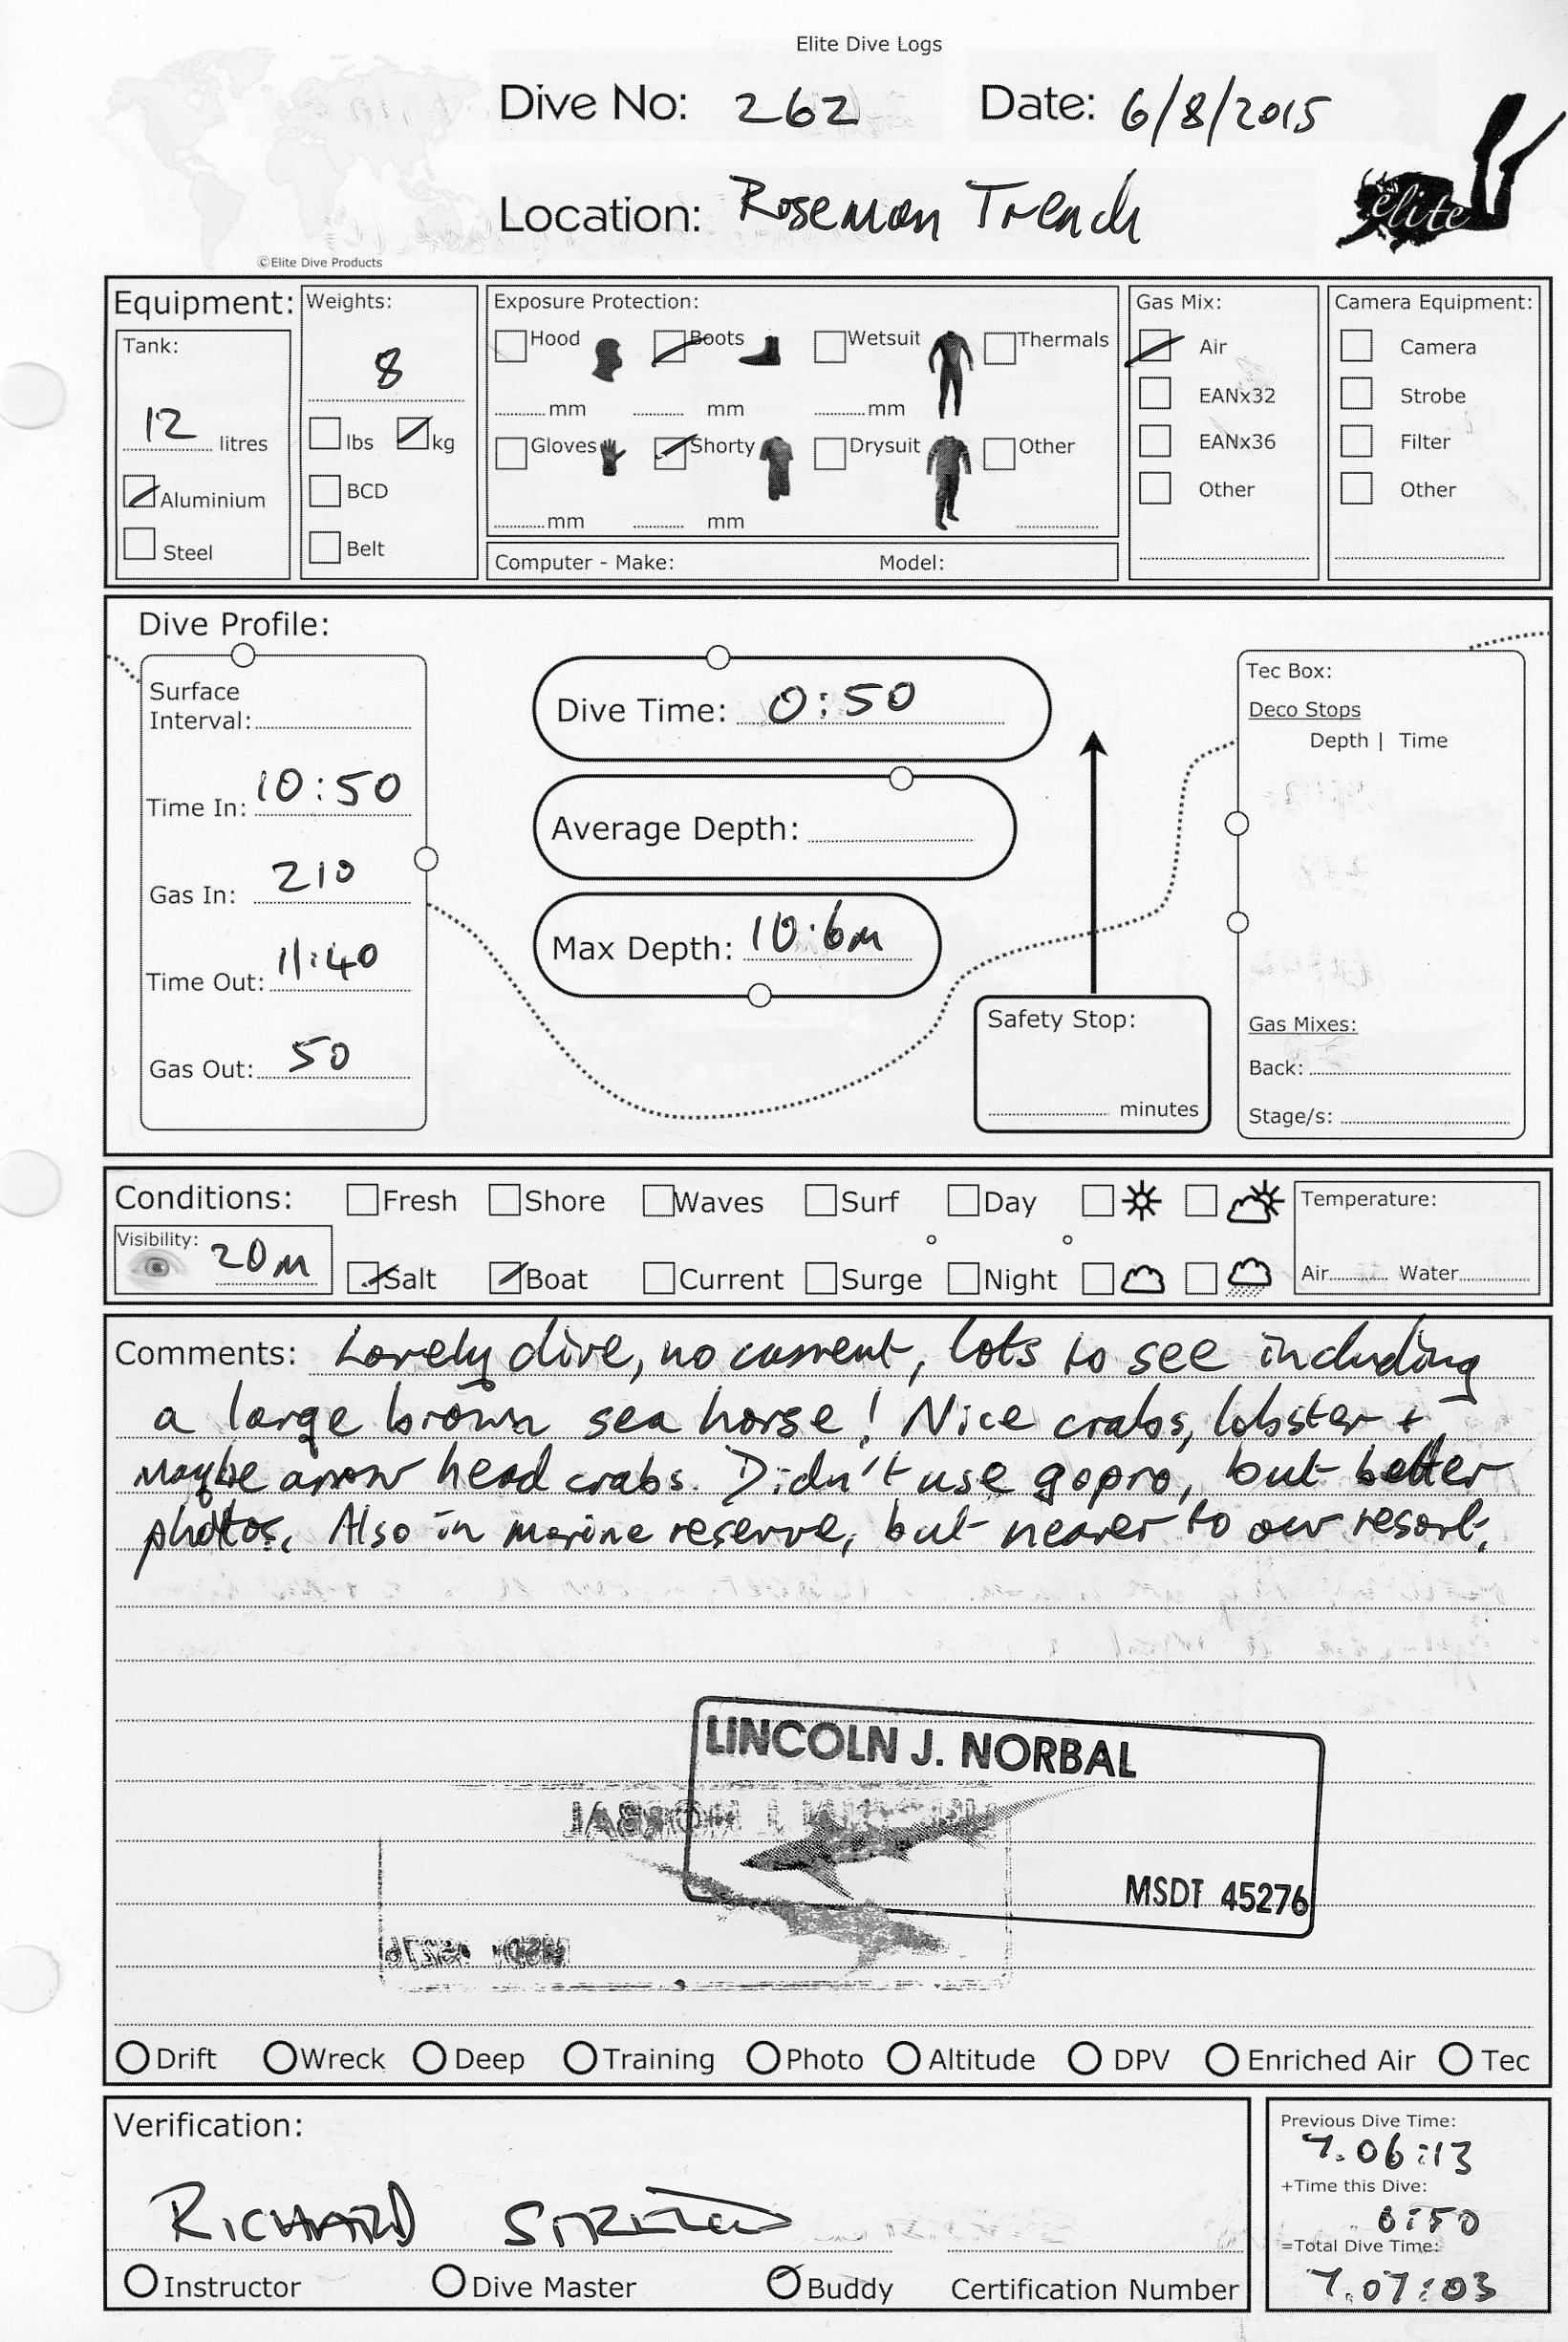 Elite Dive Logs
Dive No: 262 Date: 6/8/2015
Location: Roseman Trench
elite
©Elite Dive Products
Equipment:
Tank:
12 litres
Aluminium
Steel
Weights:
8
lbs kg
BCD
Belt
Exposure Protection:
Hood Boots Wetsuit Thermals
mm mm mm
Gloves Shorty Drysuit Other
mm mm
Computer - Make: Model:
Gas Mix:
Air
EANx32
EANx36
Other
Camera Equipment:
Camera
Strobe
Filter
Other
Dive Profile:
Surface
Interval:
Time In: 10:50
Gas In: 210
Time Out: 11:40
Gas Out: 50
Dive Time: 0:50
Average Depth:
Max Depth: 10.6m
Safety Stop:
minutes
Tec Box:
Deco Stops
Depth | Time
Gas Mixes:
Back:
Stage/s:
Conditions: Fresh Shore Waves Surf Day
Visibility: 20m Salt Boat Current Surge Night
Temperature:
Air Water
Comments: Lovely dive, no current, lots to see including
a large brown sea horse! Nice crabs, lobster +
maybe arrow head crabs. Didn't use gopro, but better
photos. Also in marine reserve, but nearer to our resort.
LINCOLN J. NORBAL
MSDT 45276
Drift Wreck Deep Training Photo Altitude DPV Enriched Air Tec
Verification:
RICHARD
Instructor Dive Master Buddy Certification Number
Previous Dive Time:
7.06:13
+Time this Dive:
0:50
=Total Dive Time:
7.07:03